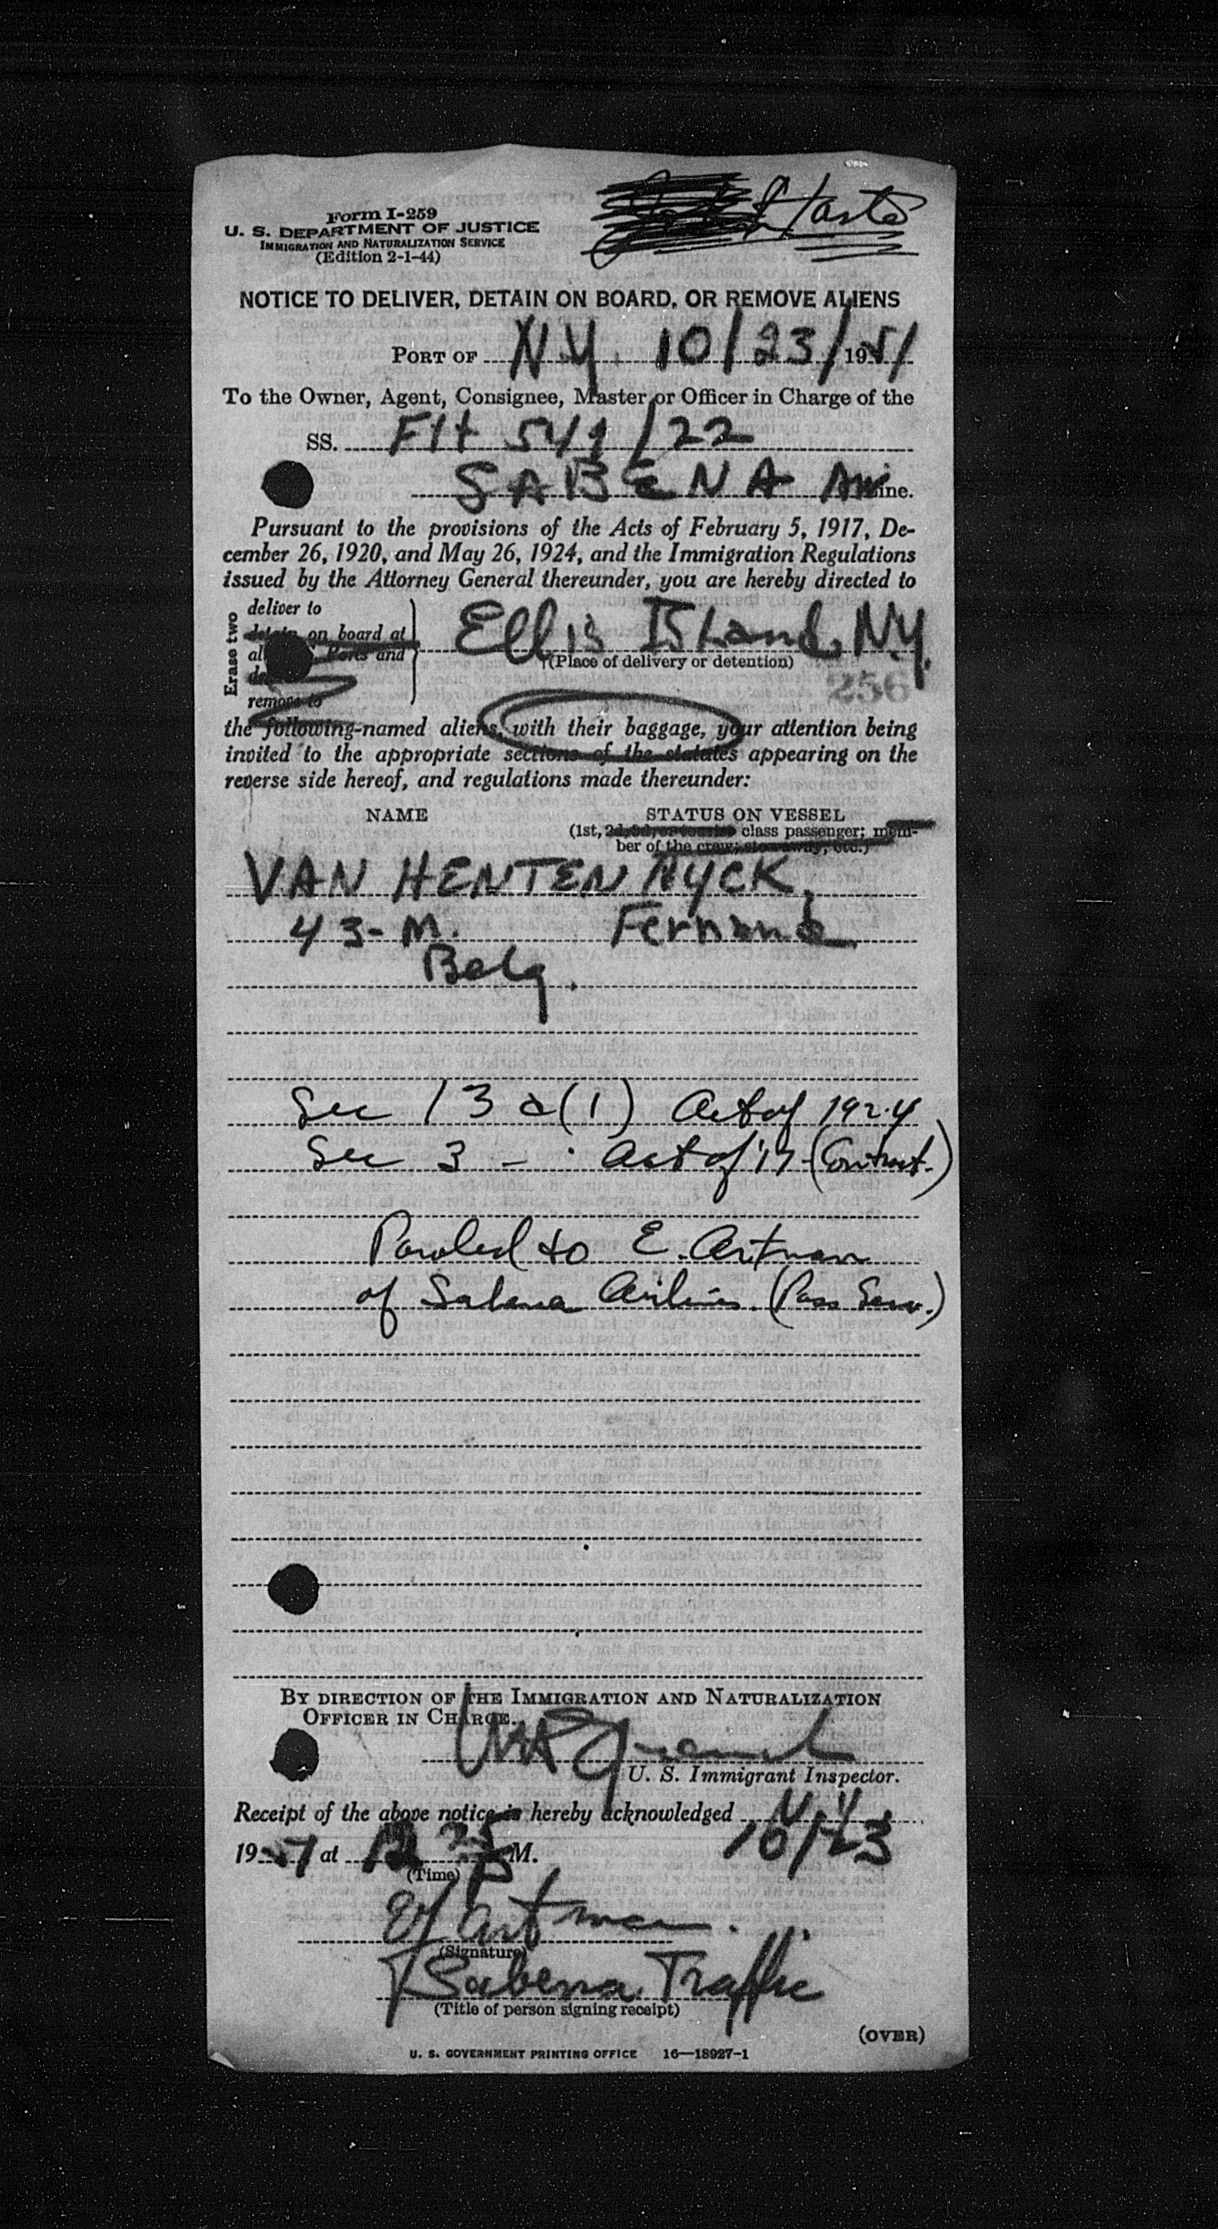 Form I-259
U. S. DEPARTMENT OF JUSTICE
IMMIGRATION AND NATURALIZATION SERVICE
(Edition 2-1-44)
NOTICE TO DELIVER, DETAIN ON BOARD, OR REMOVE ALIENS
PORT OF NY. 10/23/ 1951
To the Owner, Agent, Consignee, Master or Officer in Charge of the
SS. Flt 541/22
SABENA Air line.
Pursuant to the provisions of the Acts of February 5, 1917, De-
cember 26, 1920, and May 26, 1924, and the Immigration Regulations
issued by the Attorney General thereunder, you are hereby directed to
Erase two
deliver to
detain on board at
Ports and
remove to
Ellis Island, N.Y.
(Place of delivery or detention)
256
the following-named aliens, with their baggage, your attention being
invited to the appropriate sections of the statutes appearing on the
reverse side hereof, and regulations made thereunder:
NAME STATUS ON VESSEL
(1st, 2d, 3d, or tourist class passenger; mem-
ber of the crew; stowaway; etc.)
VAN HENTENRYCK,
43-M. Fernand
Belg.
Sec 13 a(1) Act of 1924
Sec 3 - Act of '17 (Contract.)
Paroled to E. Artman
of Sabena Airlines. (Pass Serv.)
BY DIRECTION OF THE IMMIGRATION AND NATURALIZATION
OFFICER IN CHARGE.
U. S. Immigrant Inspector.
Receipt of the above notice is hereby acknowledged N.Y.
10/23
19 51 at 12 25 P M.
(Time)
Artman
(Signature)
Sabena Traffic
(Title of person signing receipt)
(OVER)
U. S. GOVERNMENT PRINTING OFFICE 16—18927-1